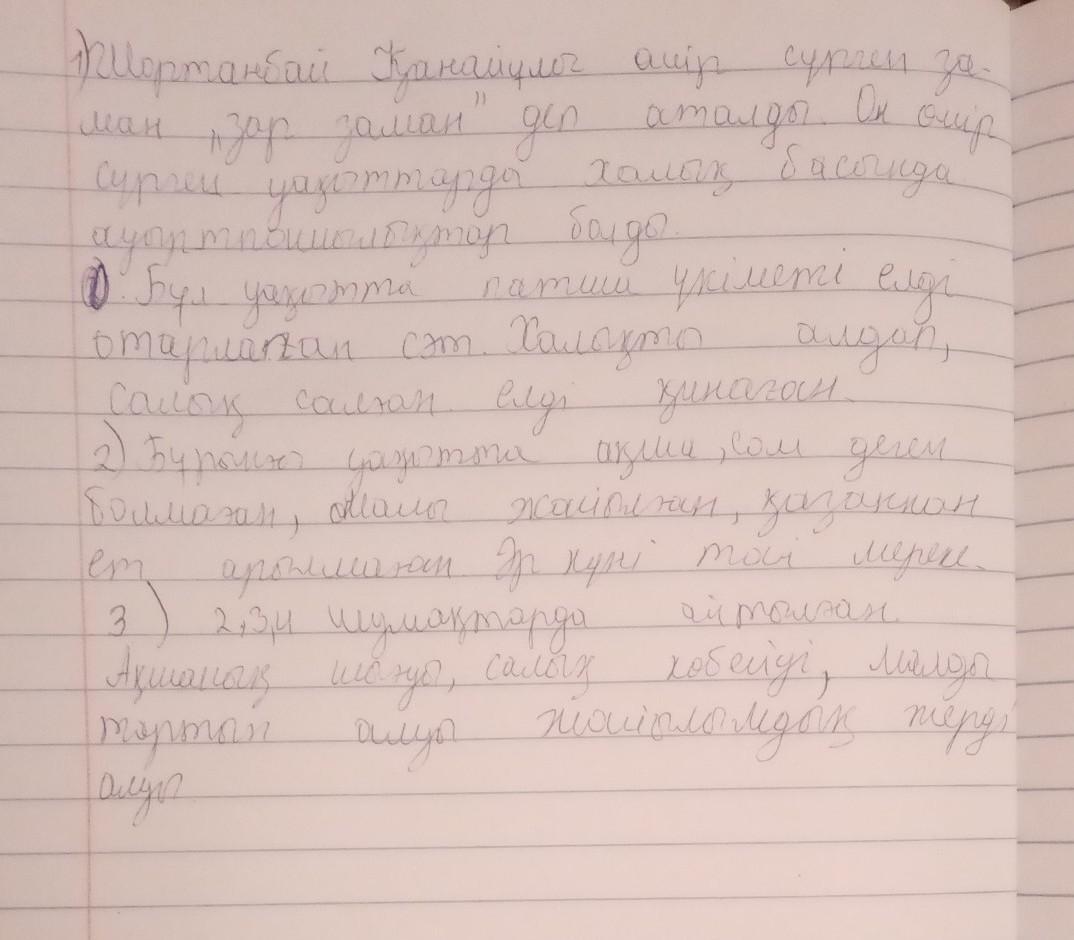 1) Шортанбай Қанайұлы өмір сүрген за-
ман „зар заман" деп аталды. Ол өмір
сүрген уақыттарда халық басында
ауыртпашылықтар болды.
1. Бұл уақытта патша үкіметі елді
отарлаған сәт. Халықты алдап,
салық салған елді қинаған.
2) Бұрынғы уақытта ақша, сом деген
болмаған, Малы жайылған, қазаннан
ет арылмаған Әр күні той мереке.
3) 2,3,4 шумақтарда айтылған.
Ақшаның шығуы, салық көбейді, малды
тартып алуы жайылымдық жерді
алуы